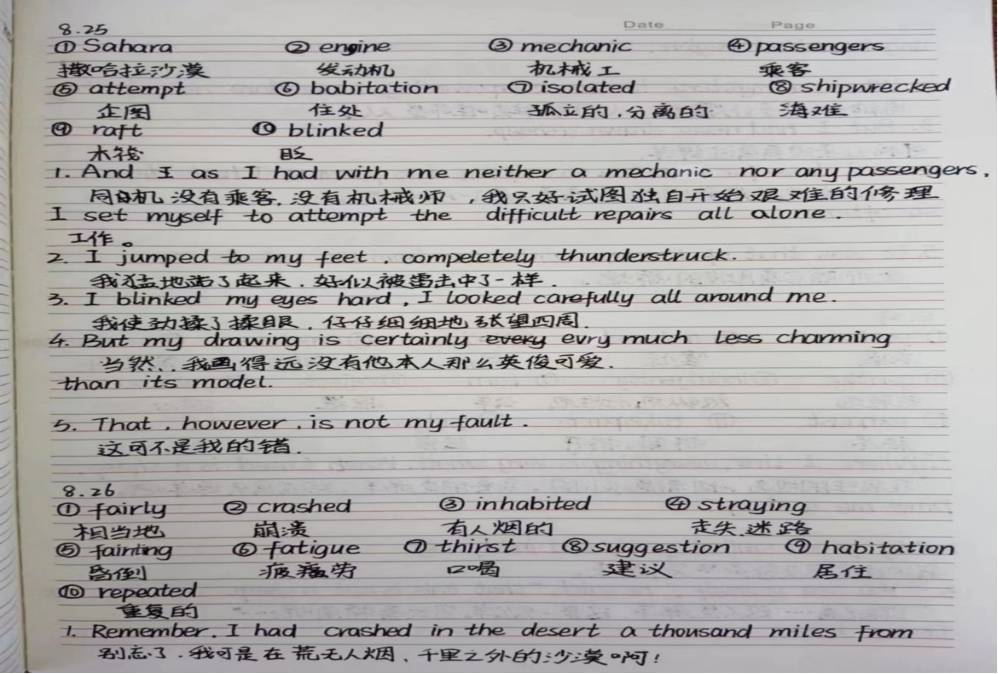 Date Page
8.25
① Sahara ② engine ③ mechanic ④ passengers
撒哈拉沙漠 发动机 机械工 乘客
⑤ attempt ⑥ babitation ⑦ isolated ⑧ shipwrecked
企图 住处 孤立的,分离的 海难
⑨ raft ⑩ blinked
木筏 眨
1. And as I had with me neither a mechanic nor any passengers,
机没有乘客,没有机械师,我只好试图独自开始艰难的修理
I set myself to attempt the difficult repairs all alone.
工作。
2. I jumped to my feet, compeletely thunderstruck.
我猛地站了起来,好似被雷击中了一样.
3. I blinked my eyes hard, I looked carefully all around me.
我使劲揉了揉眼,仔仔细细地张望四周.
4. But my drawing is certainly every evry much less charming
当然,我画得远没有他本人那么英俊可爱.
than its model.
5. That, however, is not my fault.
这可不是我的错.
8.26
① fairly ② crashed ③ inhabited ④ straying
相当地 崩溃 有人烟的 走失,迷路
⑤ fainting ⑥ fatigue ⑦ thirst ⑧ suggestion ⑨ habitation
昏倒 疲劳 口喝 建议 居住
⑩ repeated
重复的
1. Remember, I had crashed in the desert a thousand miles from
别忘了,我可是在荒无人烟、千里之外的沙漠啊!